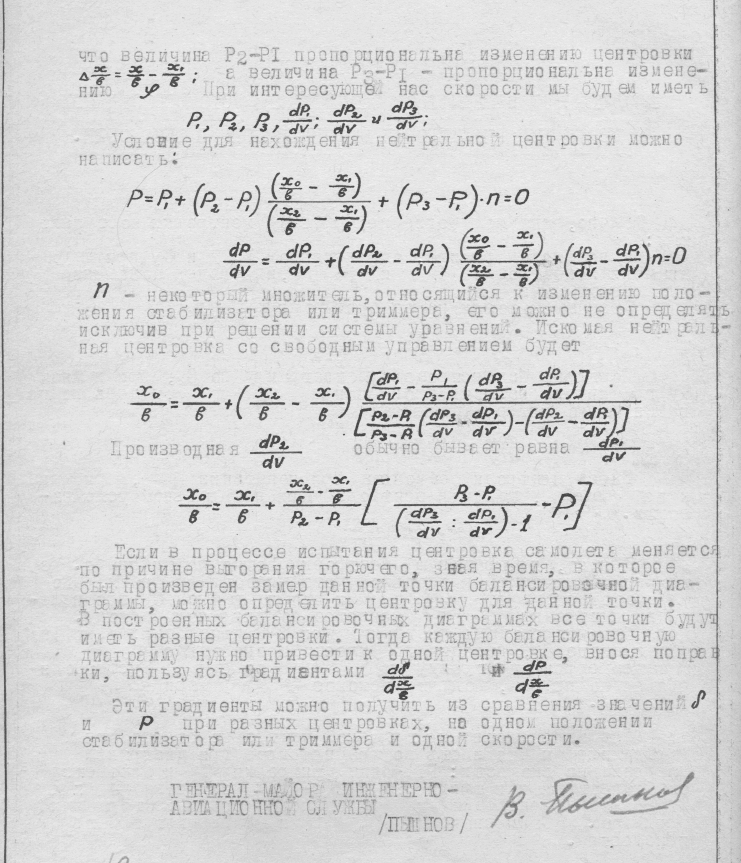 что величина P2-PI пропорциональна изменению центровки
Δ x/в = x/в - x₁/в ; а величина P3-PI - пропорциональна измене-
нию φ При интересующей нас скорости мы будем иметь
P₁, P₂, P₃, dP₁/dv; dP₂/dv и dP₃/dv;
Условие для нахождения нейтральной центровки можно
написать:
P = P₁ + (P₂ - P₁) (x₀/в - x₁/в)/(x₂/в - x₁/в) + (P₃ - P₁)·n = 0
dP/dv = dP₁/dv + (dP₂/dv - dP₁/dv) (x₀/в - x₁/в)/(x₂/в - x₁/в) + (dP₃/dv - dP₁/dv)n = 0
n - некоторый множитель, относящийся к изменению поло-
жения стабилизатора или триммера, его можно не определять
исключив при решении системы уравнений. Искомая нейтраль-
ная центровка со свободным управлением будет
x₀/в = x₁/в + (x₂/в - x₁/в) [dP₁/dv - P₁/(P₃-P₁) (dP₃/dv - dP₁/dv)] / [(P₂-P₁)/(P₃-P₁) (dP₃/dv - dP₁/dv) - (dP₂/dv - dP₁/dv)]
Производная dP₂/dv обычно бывает равна dP₁/dv
x₀/в = x₁/в + (x₂/в - x₁/в)/(P₂ - P₁) [ (P₃ - P₁)/((dP₃/dv : dP₁/dv) - 1) - P₁ ]
Если в процессе испытания центровка самолета меняется
по причине выгорания горючего, зная время, в которое
был произведен замер данной точки балансировочной диа-
граммы, можно определить центровку для данной точки.
В построенных балансировочных диаграммах все точки будут
иметь разные центровки. Тогда каждую балансировочную
диаграмму нужно привести к одной центровке, внося поправ
ки, пользуясь градиентами dδ/d x/в и dP/d x/в
Эти градиенты можно получить из сравнения значений δ
и P при разных центровках, на одном положении
стабилизатора или триммера и одной скорости.
ГЕНЕРАЛ-МАЙОР ИНЖЕНЕРНО-
АВИАЦИОННОЙ СЛУЖБЫ
/ПЫШНОВ/ В. Пышнов